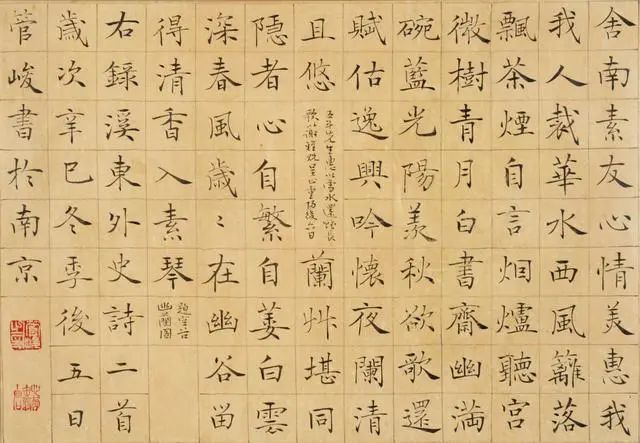 舍南素友心情美惠我
我人裁華水西風籬落
飄茶煙自言烟爐聽宮
微樹青月白書齋幽満
碗藍光陽羨秋欲歌還
賦估逸興吟懷夜闌清
且悠
先生惠以雪水還
歌以謝
蘭艸堪同
隱者心自繁自萎白雲
深春風歲〻在幽谷留
得清香入素琴
題空谷
幽蘭圖
右錄溪東外史詩二首
歲次辛巳冬季後五日
管峻書於南京